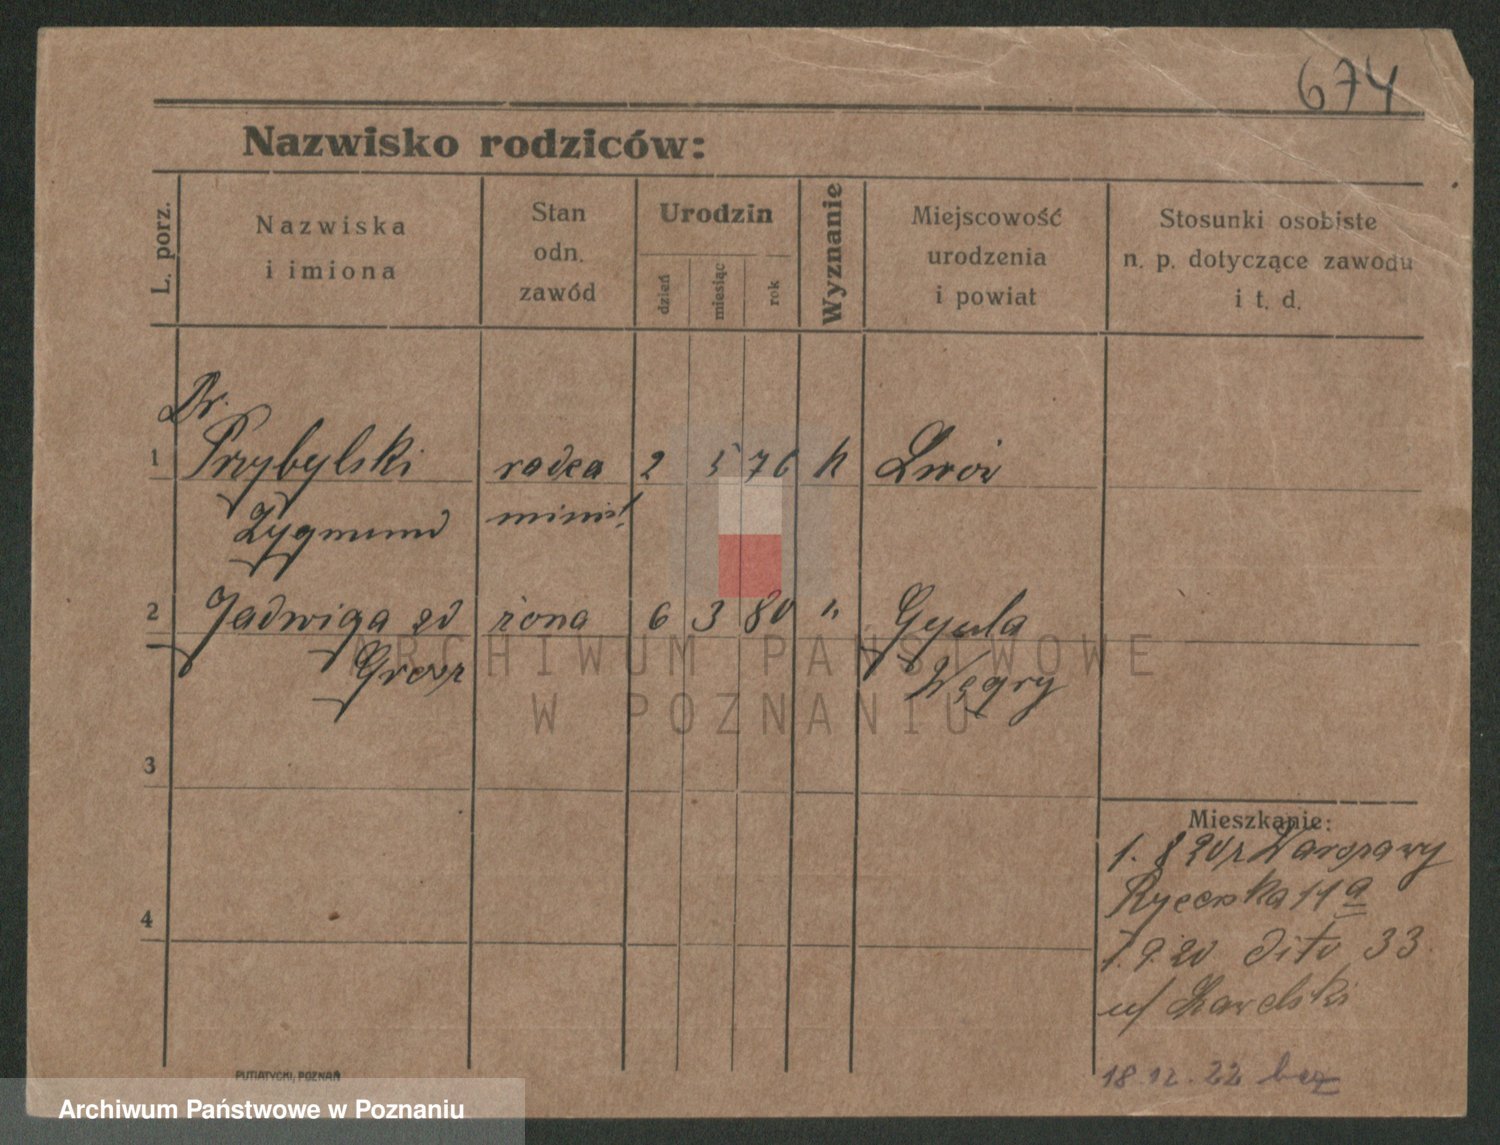 674
Nazwisko rodziców:
L. porz.
Nazwiska i imiona
Stan odn. zawód
Urodzin
dzień
miesiąc
rok
Wyznanie
Miejscowość urodzenia i powiat
Stosunki osobiste n. p. dotyczące zawodu i t. d.
Dr.
1 Przybylski radca 2 5 76 k Lwów
Zygmund minist.
2 Jadwiga zd żona 6 3 80 " Gyula
Węgry
3
4
Mieszkanie:
1. 8 20 z Warszawy
11 a
1. 9. 20 dito 33
u/
18 12. 22
PUTIATYCKI, POZNAŃ
ARCHIWUM PAŃSTWOWE
W POZNANIU
Archiwum Państwowe w Poznaniu